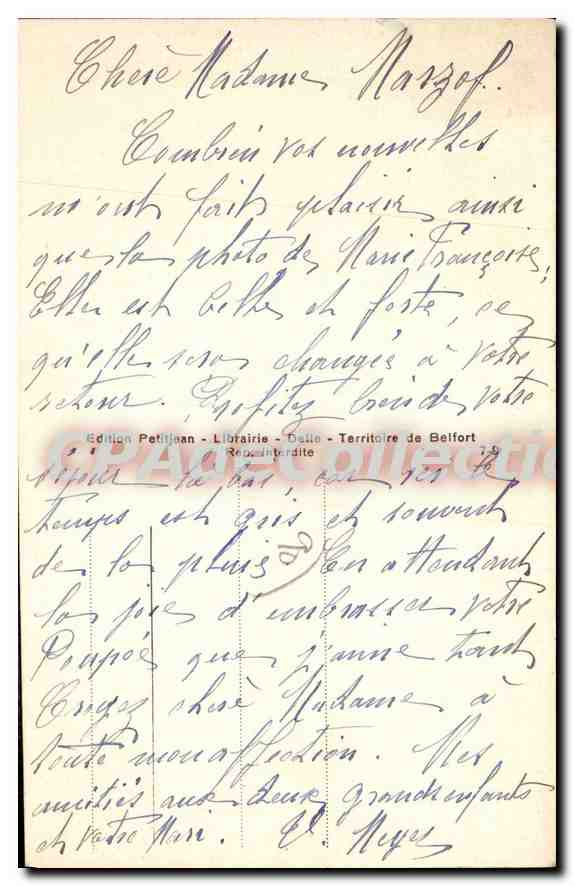 Cherè Madame Marzof.
Combien vos nouvelles
m'ont fait plaisir ainsi
que la photo de Marie Françoise,
Elle est belle et forte, ce
qu'elle sera changée à votre
retour. Profitez bien de votre
Edition Petitjean - Librairie - Delle - Territoire de Belfort
Rep. Interdite
CPADeCollection
séjour la bas, car ici le
temps est gris et souvent
de la pluie. En attendant
90
la joie d'embrasser votre
Poupée que j'aime tant
Croyez cherè Madame à
toute mon affection. Mes
amitiés aux deux grands enfants
et votre Mari. E. Meyer